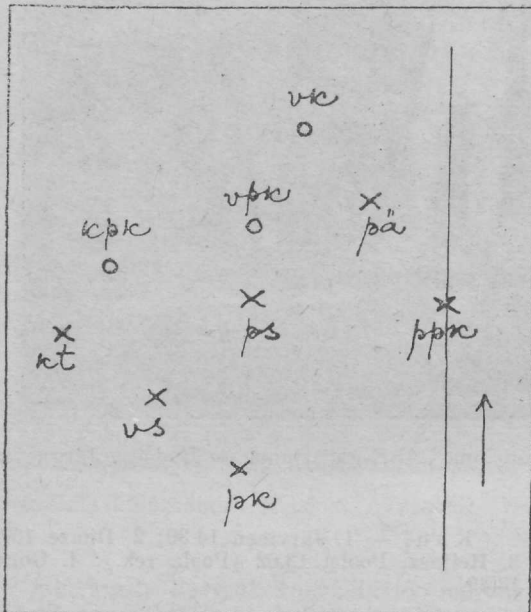 vk
vpk
pä
kpk
ps
ppk
kt
vs
pk